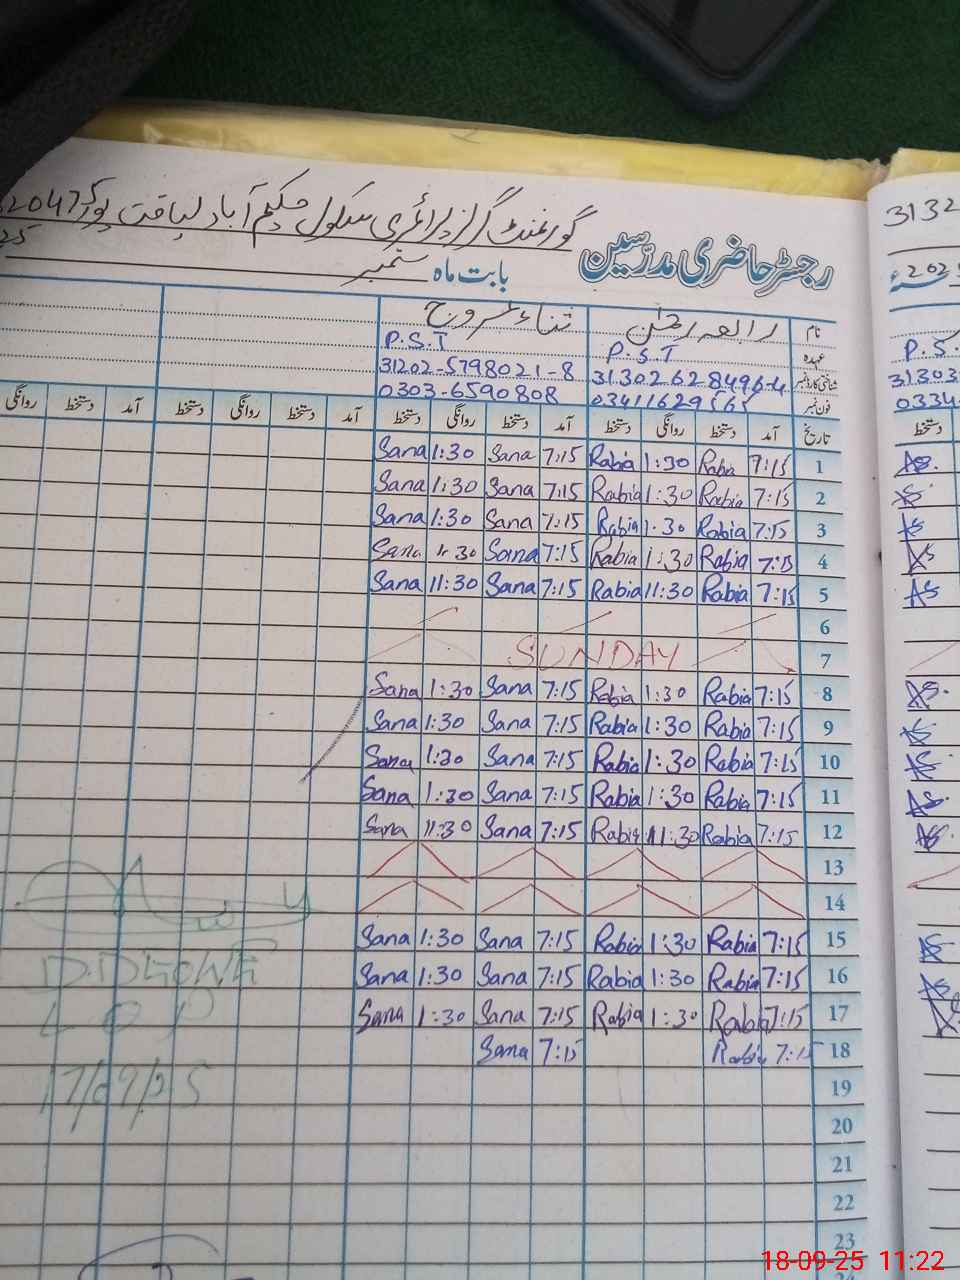 گورنمنٹ گرلز پرائمری سکول حکیم آباد لیاقت پور
رجسٹر حاضری مدرسین بابت ماہ ستمبر
نام رابعہ ثناء
عہدہ P.S.T P.S.T
شناختی کارڈ نمبر 31202-5798021-8
فون نمبر 0303-6590808
تاریخ آمد دستخط روانگی دستخط آمد دستخط روانگی دستخط آمد دستخط روانگی دستخط آمد دستخط روانگی
1 7:15 Rabia 1:30 Rabia 7:15 Sana 1:30 Sana
2 7:15 Rabia 1:30 Rabia 7:15 Sana 1:30 Sana
3 7:15 Rabia 1:30 Rabia 7:15 Sana 1:30 Sana
4 7:15 Rabia 1:30 Rabia 7:15 Sana 1:30 Sana
5 7:15 Rabia 11:30 Rabia 7:15 Sana 11:30 Sana
6
7 SUNDAY
8 7:15 Rabia 1:30 Rabia 7:15 Sana 1:30 Sana
9 7:15 Rabia 1:30 Rabia 7:15 Sana 1:30 Sana
10 7:15 Rabia 1:30 Rabia 7:15 Sana 1:30 Sana
11 7:15 Rabia 1:30 Rabia 7:15 Sana 1:30 Sana
12 7:15 Rabia 11:30 Rabia 7:15 Sana 11:30 Sana
13
14
15 7:15 Rabia 1:30 Rabia 7:15 Sana 1:30 Sana
16 7:15 Rabia 1:30 Rabia 7:15 Sana 1:30 Sana
17 7:15 Rabia 1:30 Rabia 7:15 Sana 1:30 Sana
18 7:15 Rabia 7:15 Sana
19
20
21
22
23
17/09/25
3132
P.S.
31303
0334-
دستخط
18-09-25 11:22